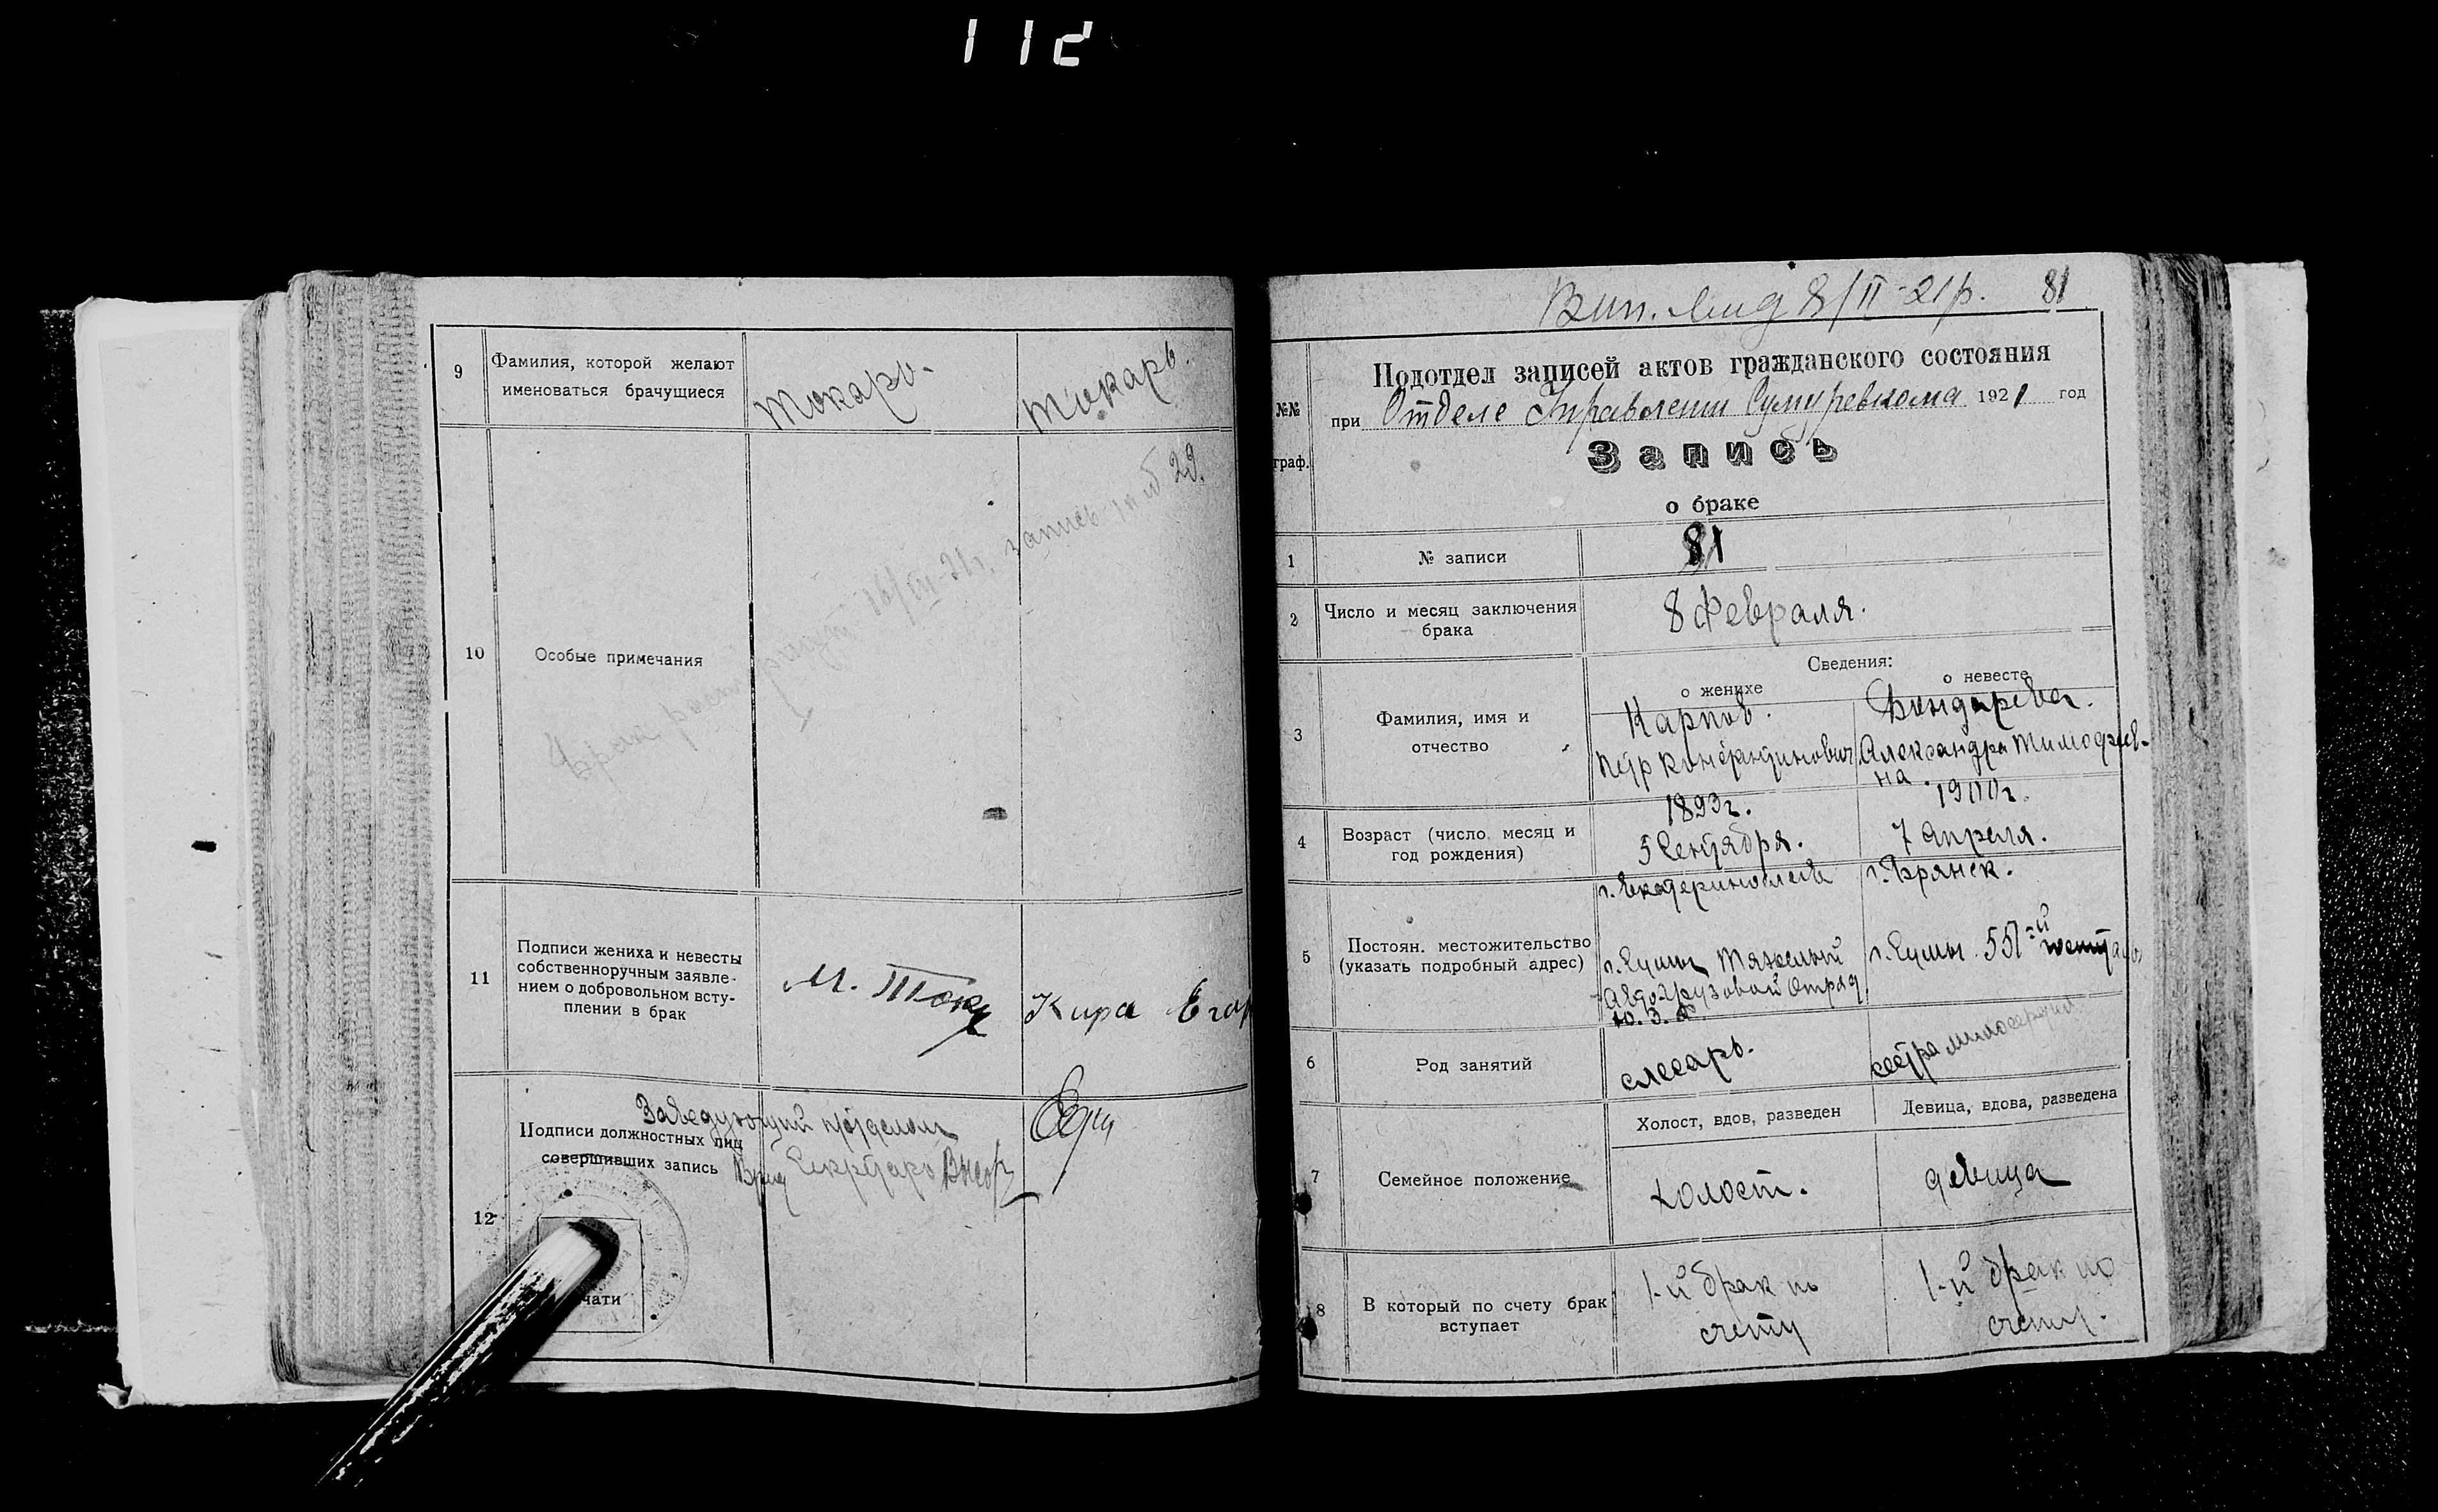 112
9
Фамилия, которой желают
именоваться брачущиеся
Токарь.
Токарь.
10
Особые примечания
Брак 16/III-21г. запись 29.
11
Подписи жениха и невесты
собственноручным заявле-
нием о добровольном всту-
плении в брак
М. Ток
Кира Егор
12
Заведующий п/отделом
Подписи должностных лиц
совершивших запись
Врид Секретаря
чати
Вип. 8/II-21р.
81
№№
граф.
Подотдел записей актов гражданского состояния
при Отделе Управления Сумуревкома 1921 год
Запись
о браке
1
№ записи
81
2
Число и месяц заключения
брака
8 Февраля.
Сведения:
о женихе
о невесте
3
Фамилия, имя и
отчество
Карпов.
Петр Константинович
Бондарева.
Александра Тимофеев-
на.
4
Возраст (число месяц и
год рождения)
1893г.
5 Сентября.
1900г.
7 Апреля.
5
Постоян. местожительство
(указать подробный адрес)
г. Екатеринослав
г. Сумы Тяжелый
Автогрузовой Отряд
Ю. З. Ф.
г. Брянск.
г. Сумы. 557-й
6
Род занятий
слесарь.
сестра милосердия
7
Семейное положение
Холост, вдов, разведен
Девица, вдова, разведена
холост.
девица
8
В который по счету брак
вступает
1-й брак по
счету
1-й брак по
счету.